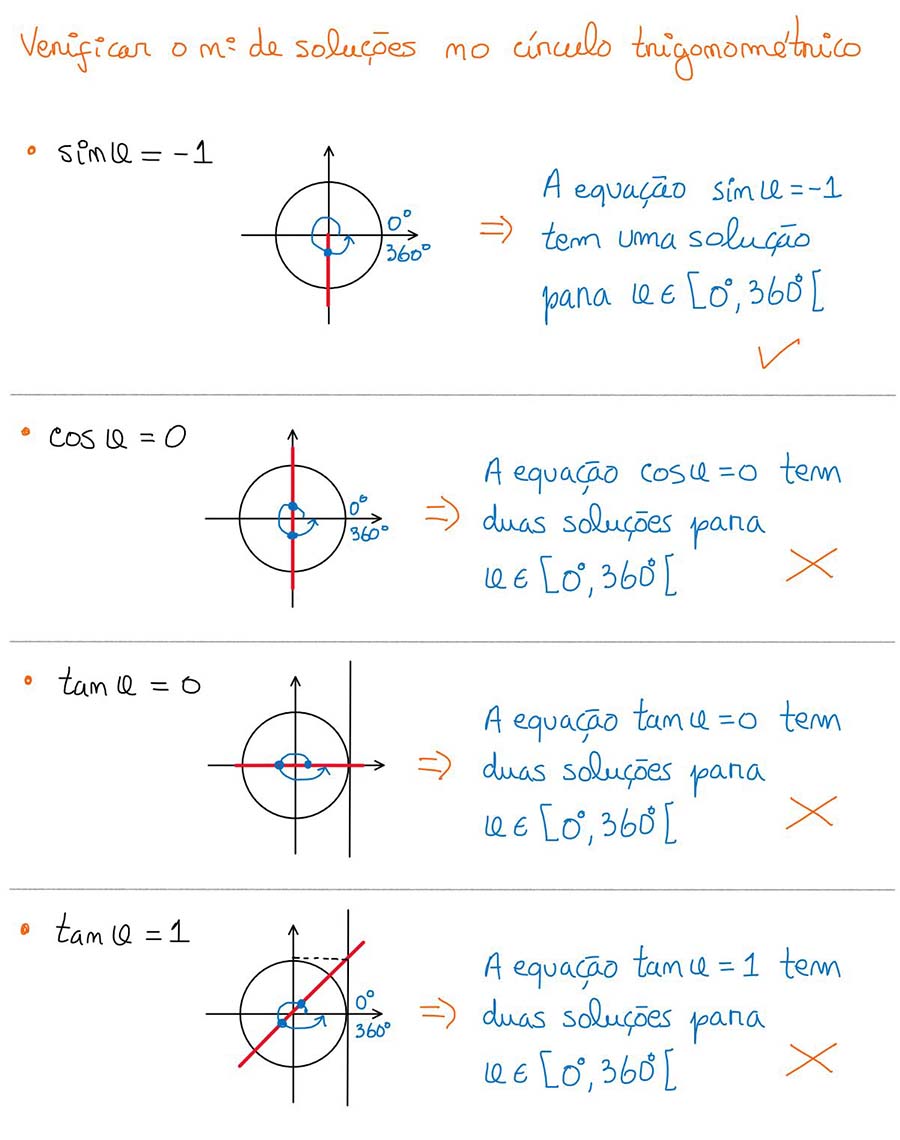 Verificar o nº de soluções no círculo trigonométrico
• sin α = -1
0°
360°
⇒ A equação sin α = -1
tem uma solução
para α ∈ [0°, 360°[
✓
• cos α = 0
0°
360°
⇒ A equação cos α = 0 tem
duas soluções para
α ∈ [0°, 360°[ ×
• tan α = 0
⇒ A equação tan α = 0 tem
duas soluções para
α ∈ [0°, 360°[ ×
• tan α = 1
0°
360°
⇒ A equação tan α = 1 tem
duas soluções para
α ∈ [0°, 360°[ ×